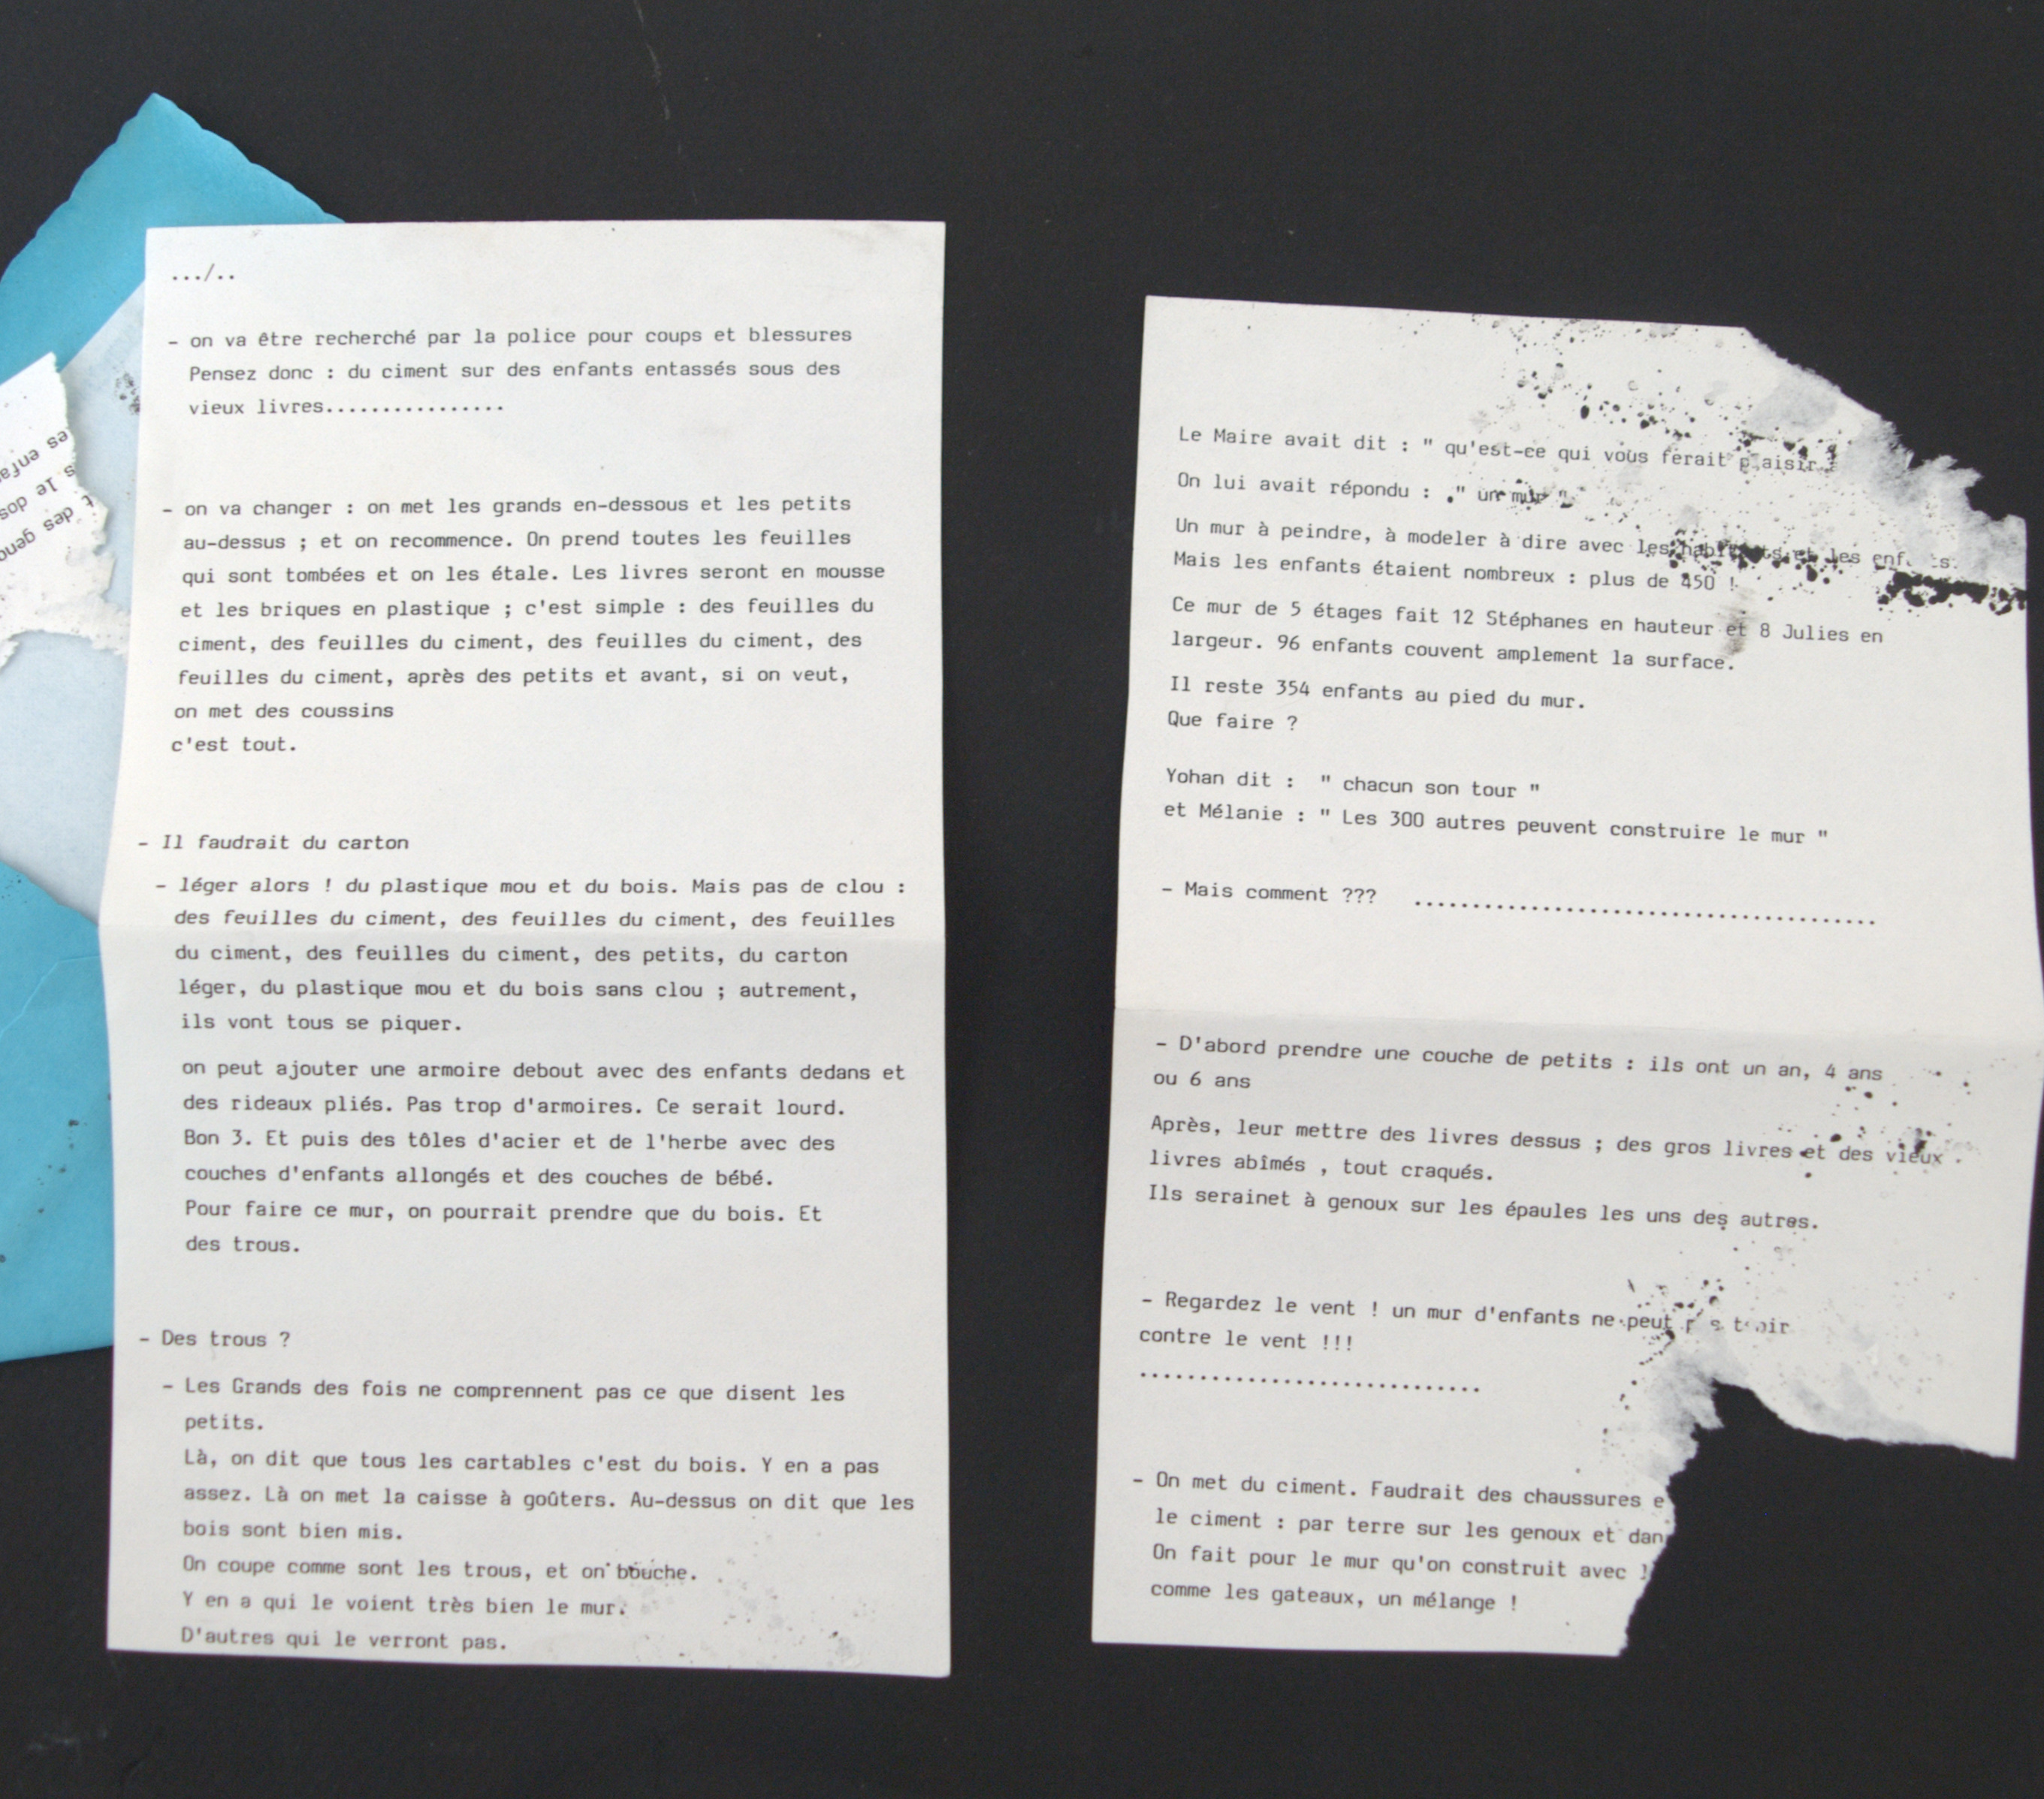 .../..
- on va être recherché par la police pour coups et blessures
Pensez donc : du ciment sur des enfants entassés sous des
vieux livres................
- on va changer : on met les grands en-dessous et les petits
au-dessus ; et on recommence. On prend toutes les feuilles
qui sont tombées et on les étale. Les livres seront en mousse
et les briques en plastique ; c'est simple : des feuilles du
ciment, des feuilles du ciment, des feuilles du ciment, des
feuilles du ciment, après des petits et avant, si on veut,
on met des coussins
c'est tout.
- Il faudrait du carton
- léger alors ! du plastique mou et du bois. Mais pas de clou :
des feuilles du ciment, des feuilles du ciment, des feuilles
du ciment, des feuilles du ciment, des petits, du carton
léger, du plastique mou et du bois sans clou ; autrement,
ils vont tous se piquer.
on peut ajouter une armoire debout avec des enfants dedans et
des rideaux pliés. Pas trop d'armoires. Ce serait lourd.
Bon 3. Et puis des tôles d'acier et de l'herbe avec des
couches d'enfants allongés et des couches de bébé.
Pour faire ce mur, on pourrait prendre que du bois. Et
des trous.
- Des trous ?
- Les Grands des fois ne comprennent pas ce que disent les
petits.
Là, on dit que tous les cartables c'est du bois. Y en a pas
assez. Là on met la caisse à goûters. Au-dessus on dit que les
bois sont bien mis.
On coupe comme sont les trous, et on bouche.
Y en a qui le voient très bien le mur.
D'autres qui le verront pas.
Le Maire avait dit : " qu'est-ce qui vous ferait plaisir
On lui avait répondu : " un mur "
Un mur à peindre, à modeler à dire avec les habitants et les enfants.
Mais les enfants étaient nombreux : plus de 450 !
Ce mur de 5 étages fait 12 Stéphanes en hauteur et 8 Julies en
largeur. 96 enfants couvent amplement la surface.
Il reste 354 enfants au pied du mur.
Que faire ?
Yohan dit : " chacun son tour "
et Mélanie : " Les 300 autres peuvent construire le mur "
- Mais comment ??? ........................................
- D'abord prendre une couche de petits : ils ont un an, 4 ans
ou 6 ans
Après, leur mettre des livres dessus ; des gros livres et des vieux
livres abîmés , tout craqués.
Ils serainet à genoux sur les épaules les uns des autres.
- Regardez le vent ! un mur d'enfants ne peut pas tenir
contre le vent !!!
..............................
- On met du ciment. Faudrait des chaussures e
le ciment : par terre sur les genoux et dan
On fait pour le mur qu'on construit avec
comme les gateaux, un mélange !